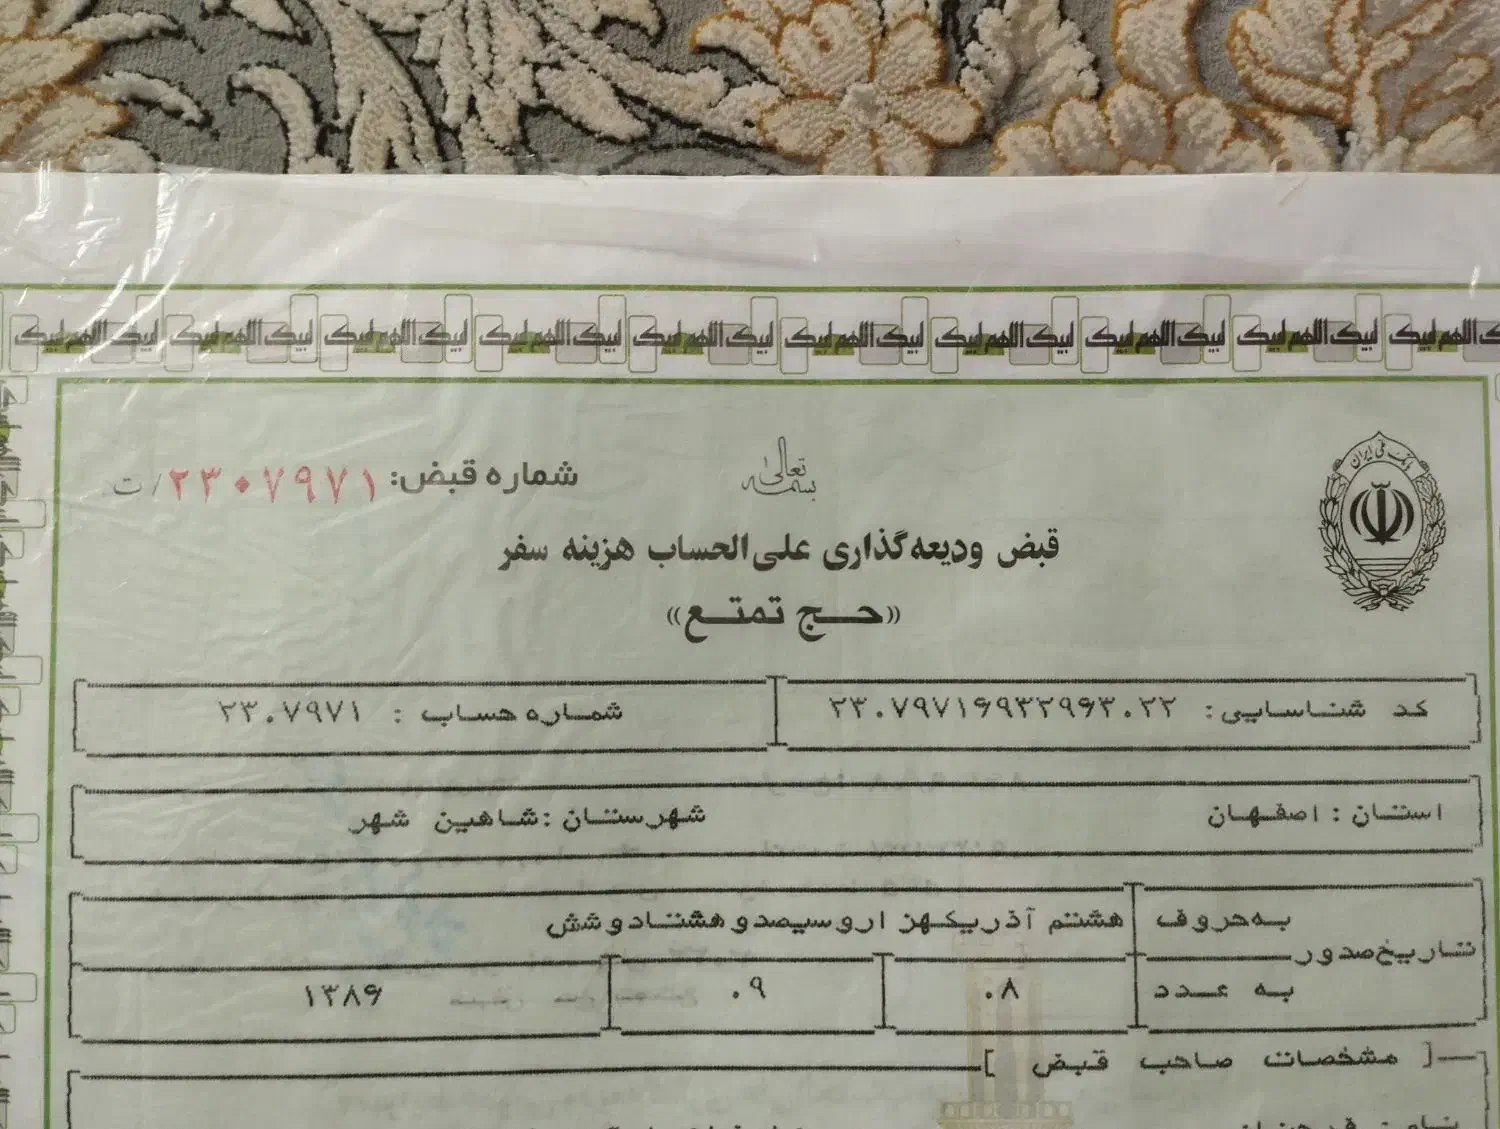 لبیک اللهم لبیک لبیک اللهم لبیک لبیک اللهم لبیک لبیک اللهم لبیک لبیک اللهم لبیک لبیک اللهم لبیک لبیک اللهم لبیک لبیک اللهم لبیک لبیک اللهم لبیک لبیک اللهم لبیک
بانک ملی ایران
بسمه تعالی
شماره قبض: ۲۳۰۷۹۷۱/ت
قبض ودیعه‌گذاری علی‌الحساب هزینه سفر
«حج تمتع»
کد شناسایی: ۲۳۰۷۹۷۱۶۹۳۲۹۶۳۰۲۲ شماره حساب : ۲۳۰۷۹۷۱
استان : اصفهان شهرستان : شاهین شهر
تاریخ صدور به حروف هشتم آذر یکهزار و سیصد و هشتاد و شش
به عدد ۰۸ ۰۹ ۱۳۸۶
[ مشخصات صاحب قبض ]